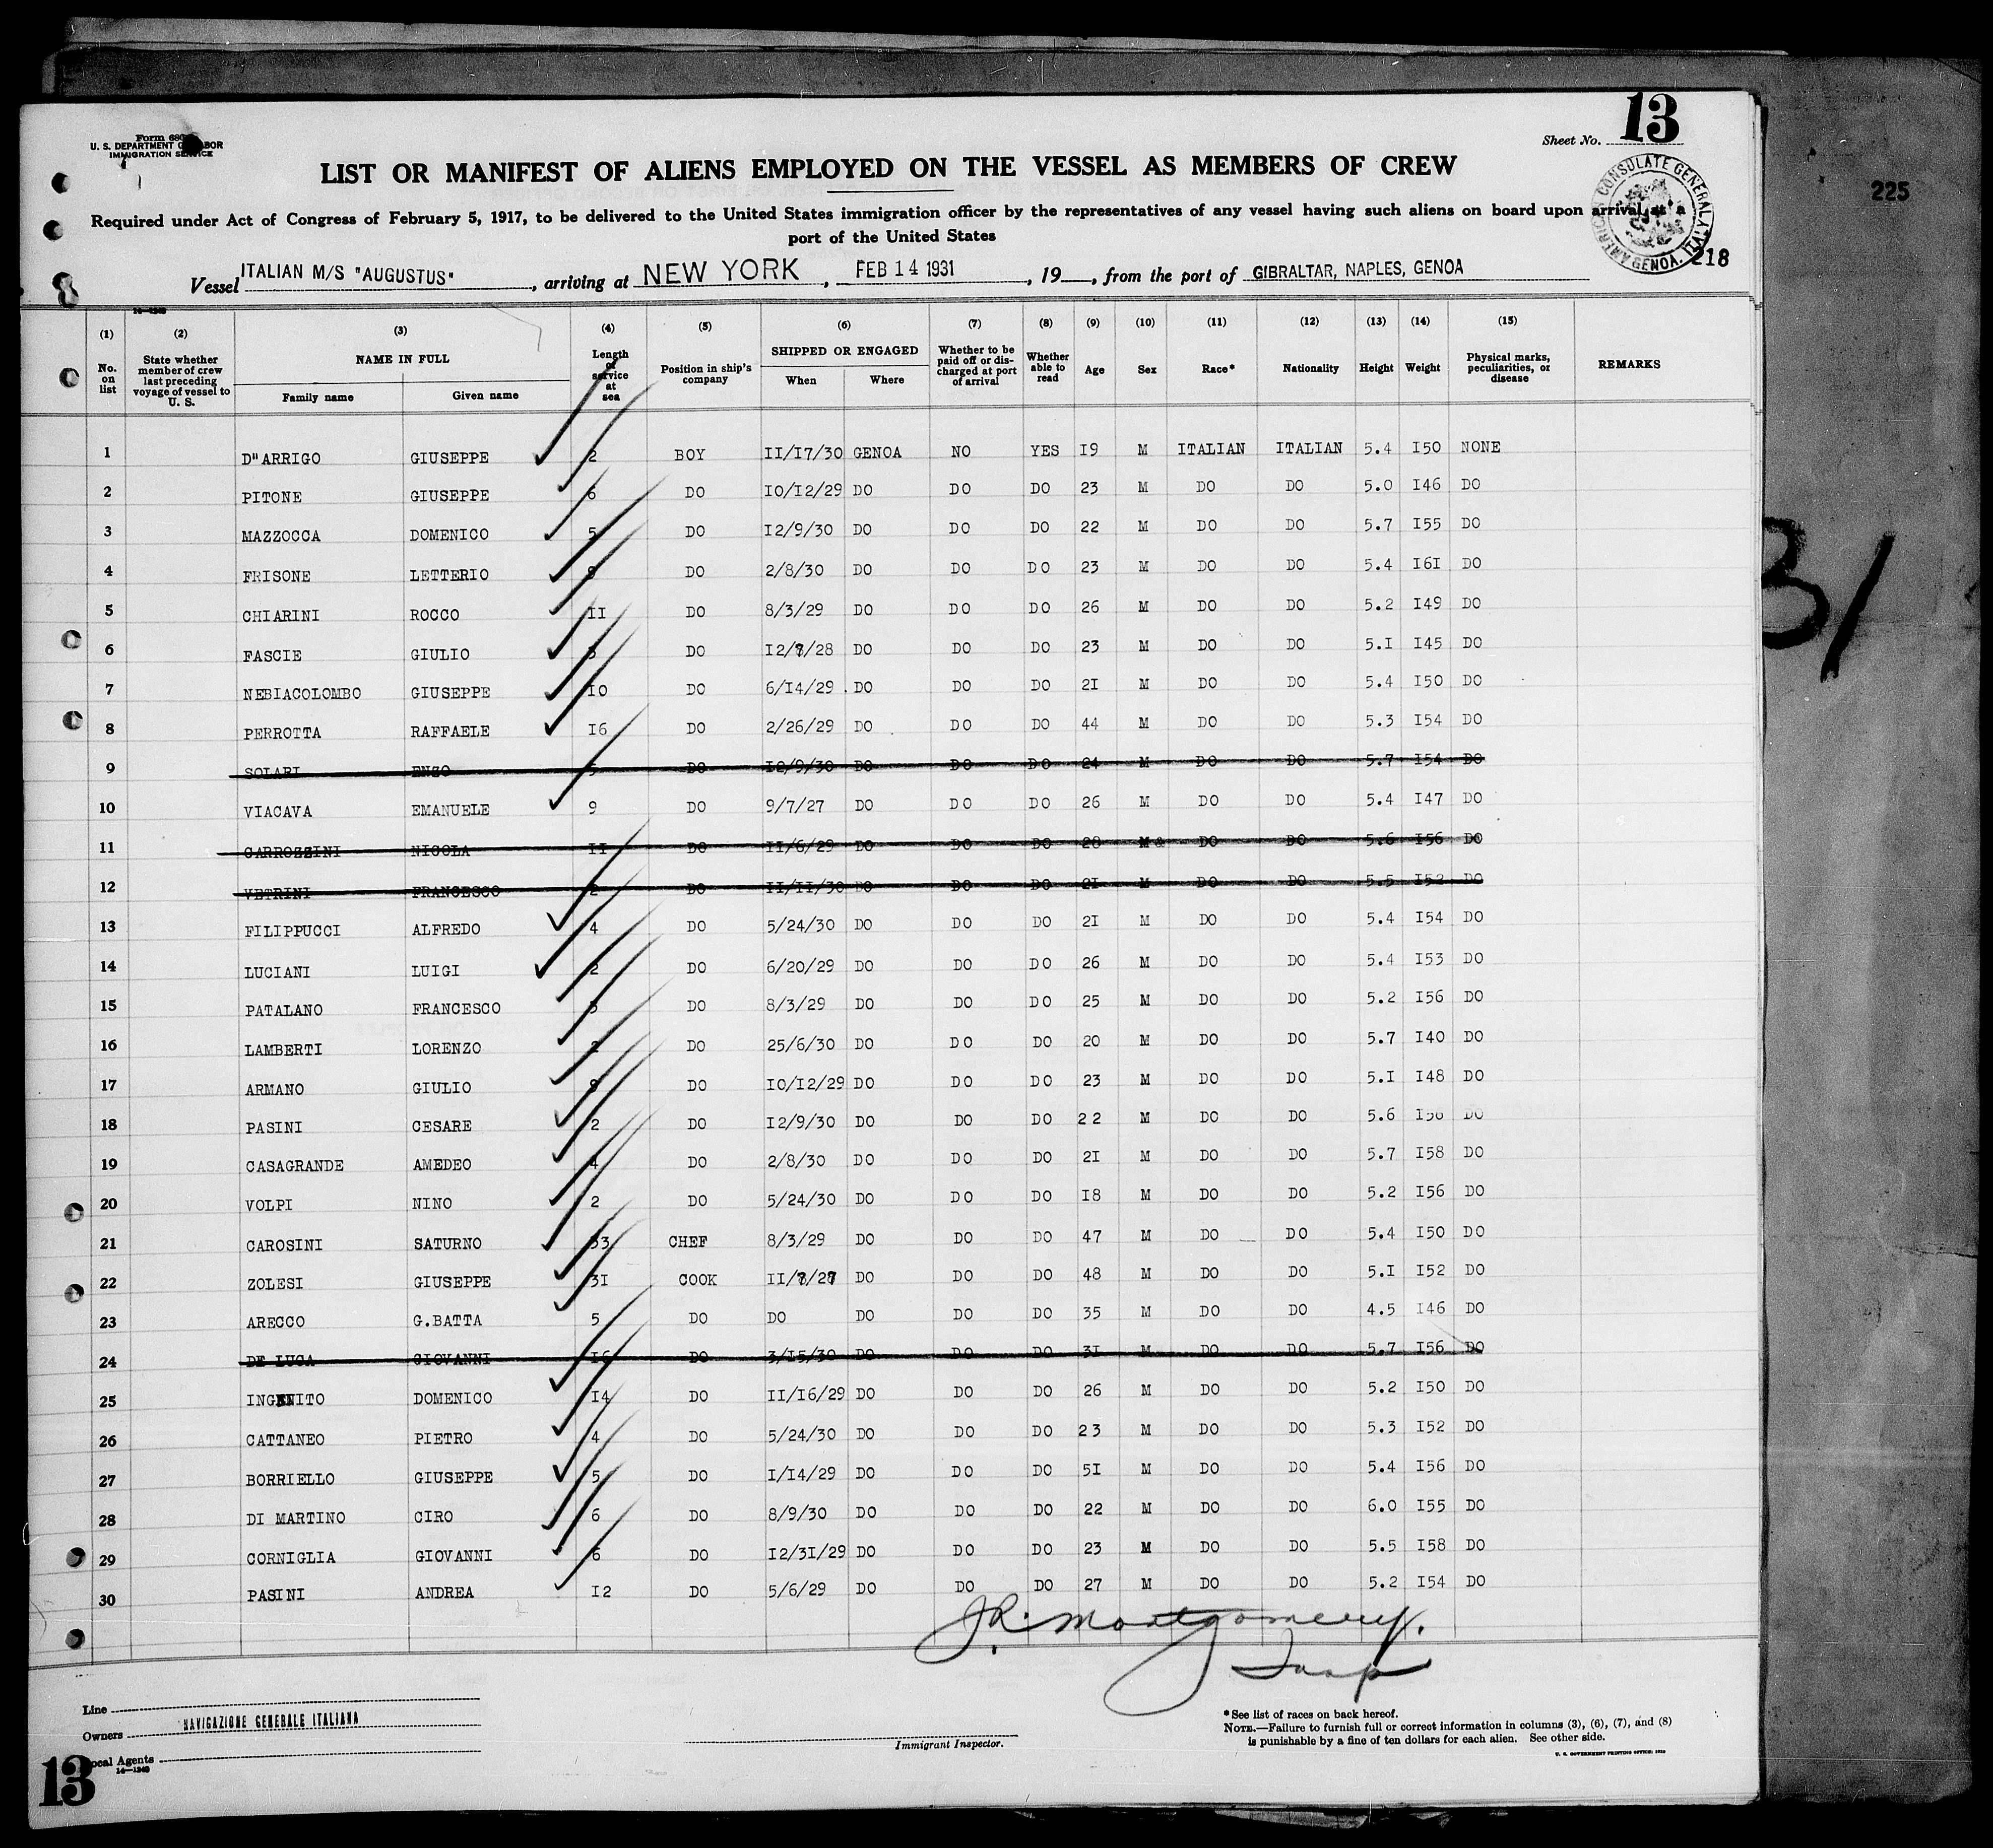 13
Sheet No.
U. S. DEPARTMENT
IMMIGRATION SERVICE
225
LIST OR MANIFEST OF ALIENS EMPLOYED ON THE VESSEL AS MEMBERS OF CREW
AMERICAN CONSULATE GENERAL
GENOA, ITALY
Required under Act of Congress of February 5, 1917, to be delivered to the United States immigration officer by the representatives of any vessel having such aliens on board upon arrival at a
port of the United States
218
Vessel ITALIAN M/S "AUGUSTUS", arriving at NEW YORK, FEB 14 1931, 19__, from the port of GIBRALTAR, NAPLES, GENOA
(1) No. on list
(2) State whether member of crew last preceding voyage of vessel to U. S.
(3) NAME IN FULL Family name Given name
(4) Length of service at sea
(5) Position in ship's company
(6) SHIPPED OR ENGAGED When Where
(7) Whether to be paid off or discharged at port of arrival
(8) Whether able to read
(9) Age
(10) Sex
(11) Race*
(12) Nationality
(13) Height
(14) Weight
(15) Physical marks, peculiarities, or disease
REMARKS
1 D"ARRIGO GIUSEPPE 2 BOY 11/17/30 GENOA NO YES 19 M ITALIAN ITALIAN 5.4 150 NONE
2 PITONE GIUSEPPE 6 DO 10/12/29 DO DO DO 23 M DO DO 5.0 146 DO
3 MAZZOCCA DOMENICO 5 DO 12/9/30 DO DO DO 22 M DO DO 5.7 155 DO
4 FRISONE LETTERIO DO 2/8/30 DO DO DO 23 M DO DO 5.4 161 DO
5 CHIARINI ROCCO 11 DO 8/3/29 DO DO DO 26 M DO DO 5.2 149 DO
6 FASCIE GIULIO DO 12/7/28 DO DO DO 23 M DO DO 5.1 145 DO
7 NEBIACOLOMBO GIUSEPPE 10 DO 6/14/29 DO DO DO 21 M DO DO 5.4 150 DO
8 PERROTTA RAFFAELE 16 DO 2/26/29 DO DO DO 44 M DO DO 5.3 154 DO
9 SOLARI ENZO 5 DO 12/9/30 DO DO DO 24 M DO DO 5.7 154 DO
10 VIACAVA EMANUELE 9 DO 9/7/27 DO DO DO 26 M DO DO 5.4 147 DO
11 CARROZZINI NICOLA 11 DO 11/6/29 DO DO DO 28 M DO DO 5.6 156 DO
12 VETRINI FRANCESCO 2 DO 11/11/30 DO DO DO 21 M DO DO 5.5 152 DO
13 FILIPPUCCI ALFREDO 4 DO 5/24/30 DO DO DO 21 M DO DO 5.4 154 DO
14 LUCIANI LUIGI 2 DO 6/20/29 DO DO DO 26 M DO DO 5.4 153 DO
15 PATALANO FRANCESCO DO 8/3/29 DO DO DO 25 M DO DO 5.2 156 DO
16 LAMBERTI LORENZO 2 DO 25/6/30 DO DO DO 20 M DO DO 5.7 140 DO
17 ARMANO GIULIO DO 10/12/29 DO DO DO 23 M DO DO 5.1 148 DO
18 PASINI CESARE 2 DO 12/9/30 DO DO DO 22 M DO DO 5.6 DO
19 CASAGRANDE AMEDEO 4 DO 2/8/30 DO DO DO 21 M DO DO 5.7 158 DO
20 VOLPI NINO 2 DO 5/24/30 DO DO DO 18 M DO DO 5.2 156 DO
21 CAROSINI SATURNO 33 CHEF 8/3/29 DO DO DO 47 M DO DO 5.4 150 DO
22 ZOLESI GIUSEPPE 31 COOK 11/8/27 DO DO DO 48 M DO DO 5.1 152 DO
23 ARECCO G.BATTA 5 DO DO DO DO DO 35 M DO DO 4.5 146 DO
24 DE LUCA GIOVANNI 16 DO 3/15/30 DO DO DO 31 M DO DO 5.7 156 DO
25 INGENITO DOMENICO 14 DO 11/16/29 DO DO DO 26 M DO DO 5.2 150 DO
26 CATTANEO PIETRO 4 DO 5/24/30 DO DO DO 23 M DO DO 5.3 152 DO
27 BORRIELLO GIUSEPPE 5 DO 1/14/29 DO DO DO 51 M DO DO 5.4 156 DO
28 DI MARTINO CIRO 6 DO 8/9/30 DO DO DO 22 M DO DO 6.0 155 DO
29 CORNIGLIA GIOVANNI 6 DO 12/31/29 DO DO DO 23 M DO DO 5.5 158 DO
30 PASINI ANDREA 12 DO 5/6/29 DO DO DO 27 M DO DO 5.2 154 DO
J.R. Montgomery.
Insp
Line
Owners NAVIGAZIONE GENERALE ITALIANA
Local Agents
14—1240
Immigrant Inspector.
*See list of races on back hereof.
NOTE.—Failure to furnish full or correct information in columns (3), (6), (7), and (8)
is punishable by a fine of ten dollars for each alien. See other side.
U. S. GOVERNMENT PRINTING OFFICE:
13
31